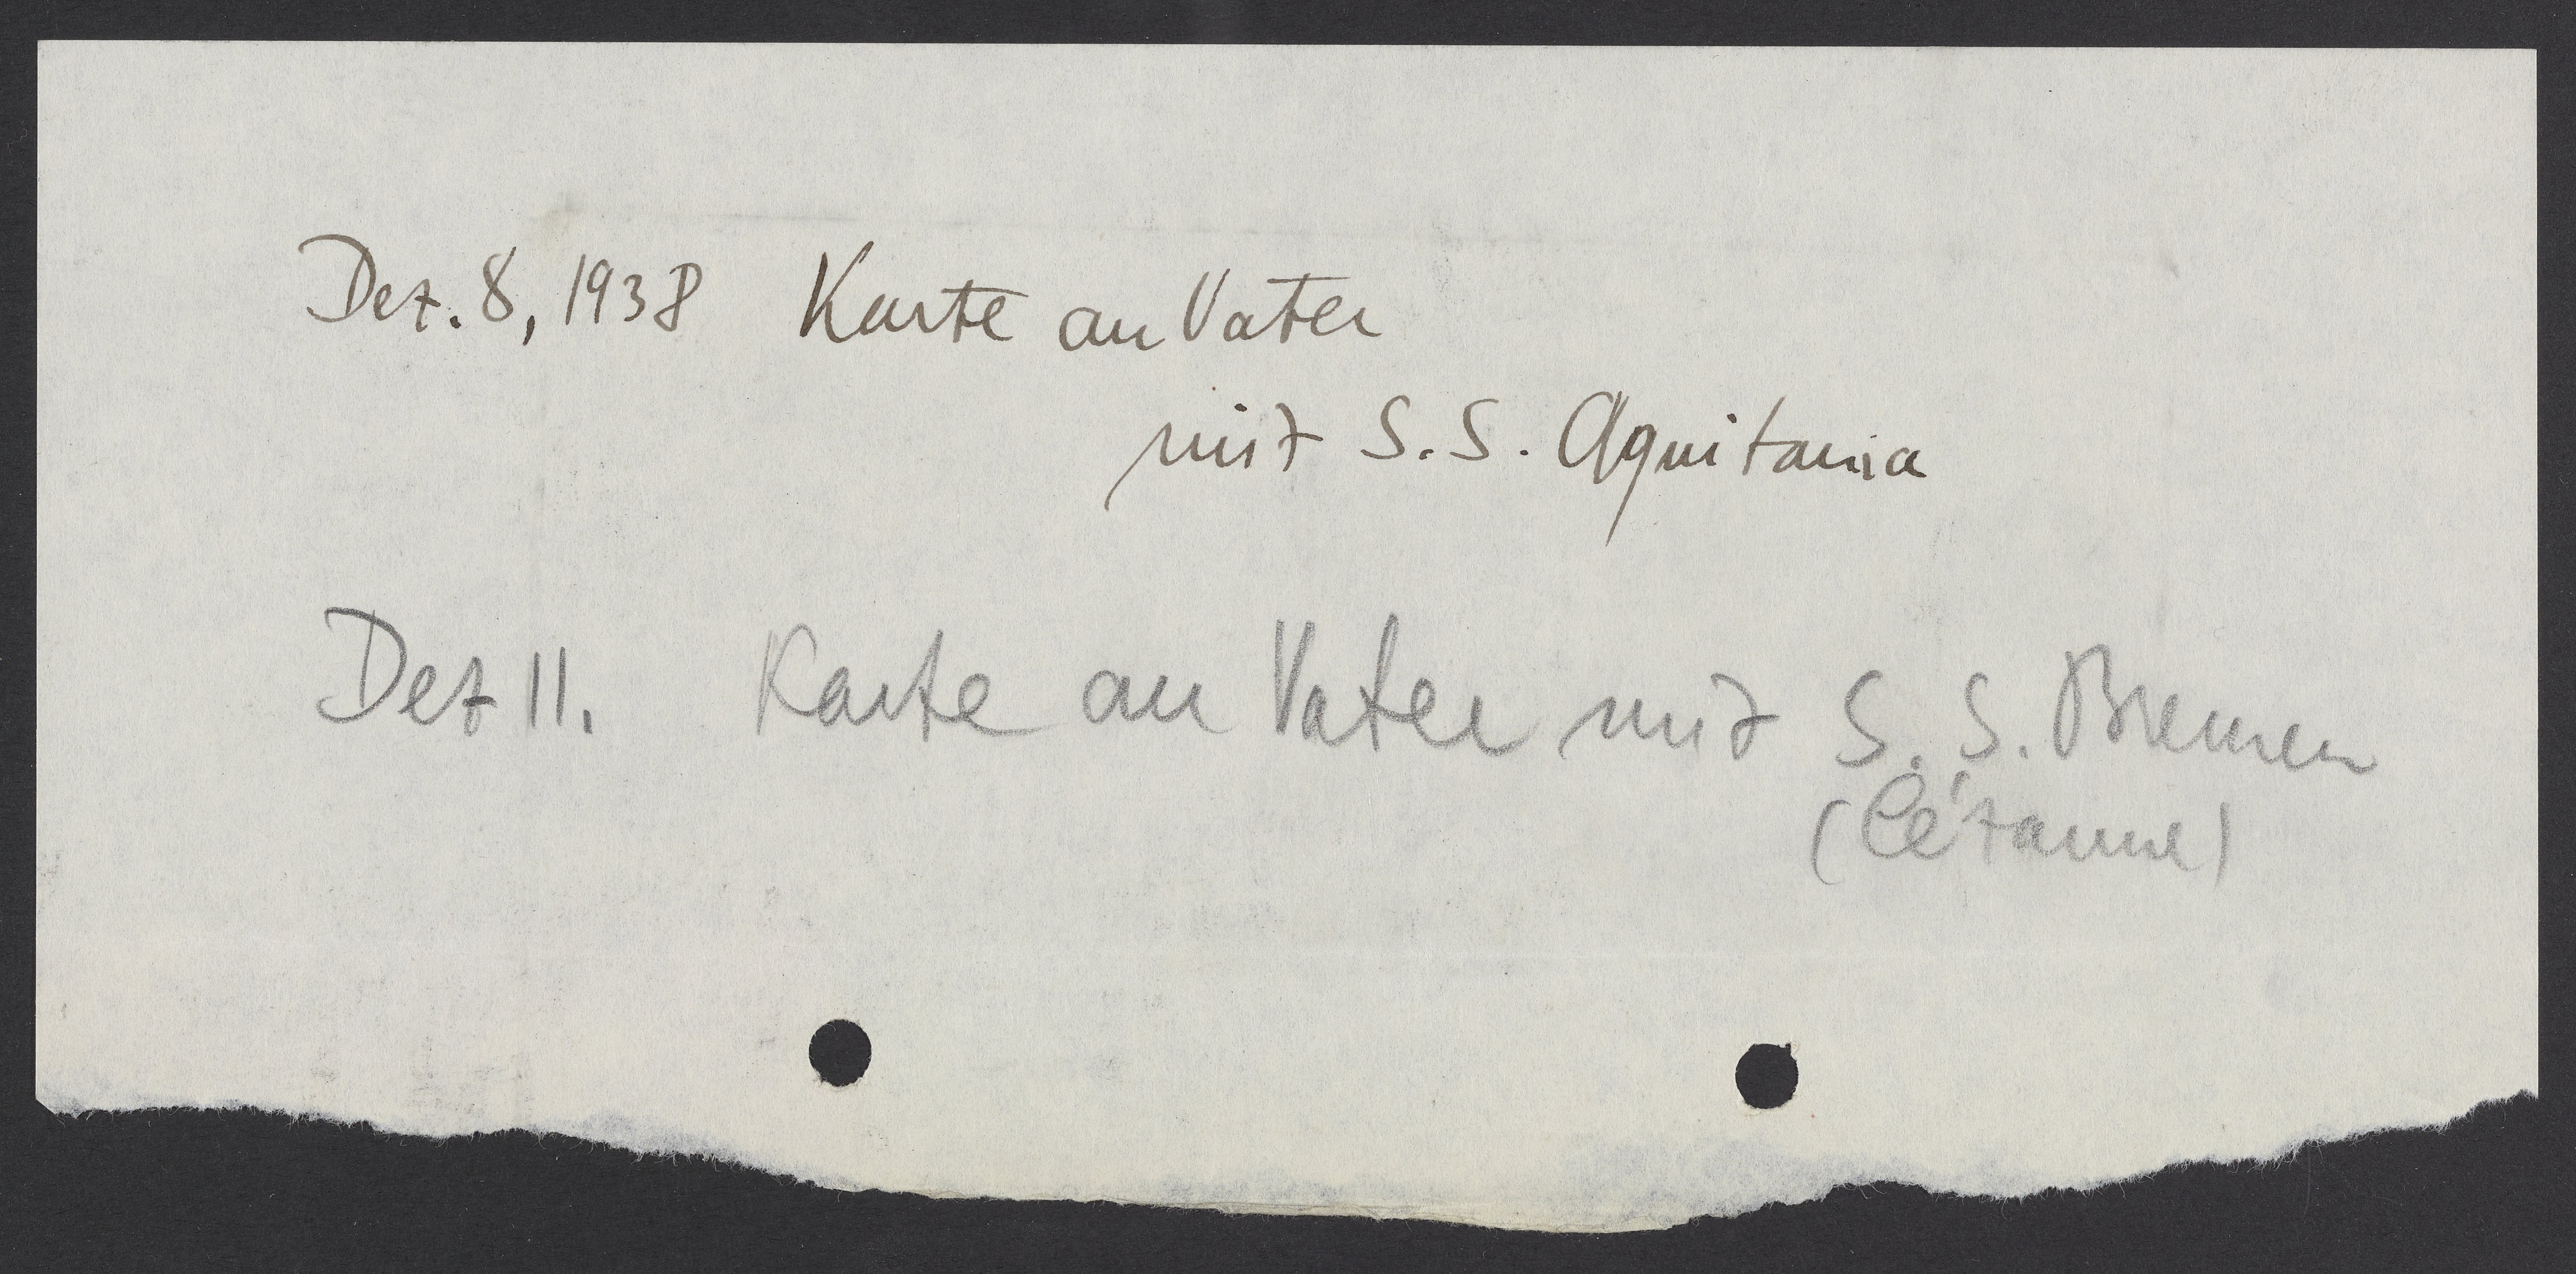 Dez. 8, 1938 Karte an Vater
mit S.S. Aquitania
Dez 11. Karte an Vater mit S.S. Bremen
(Cézanne)